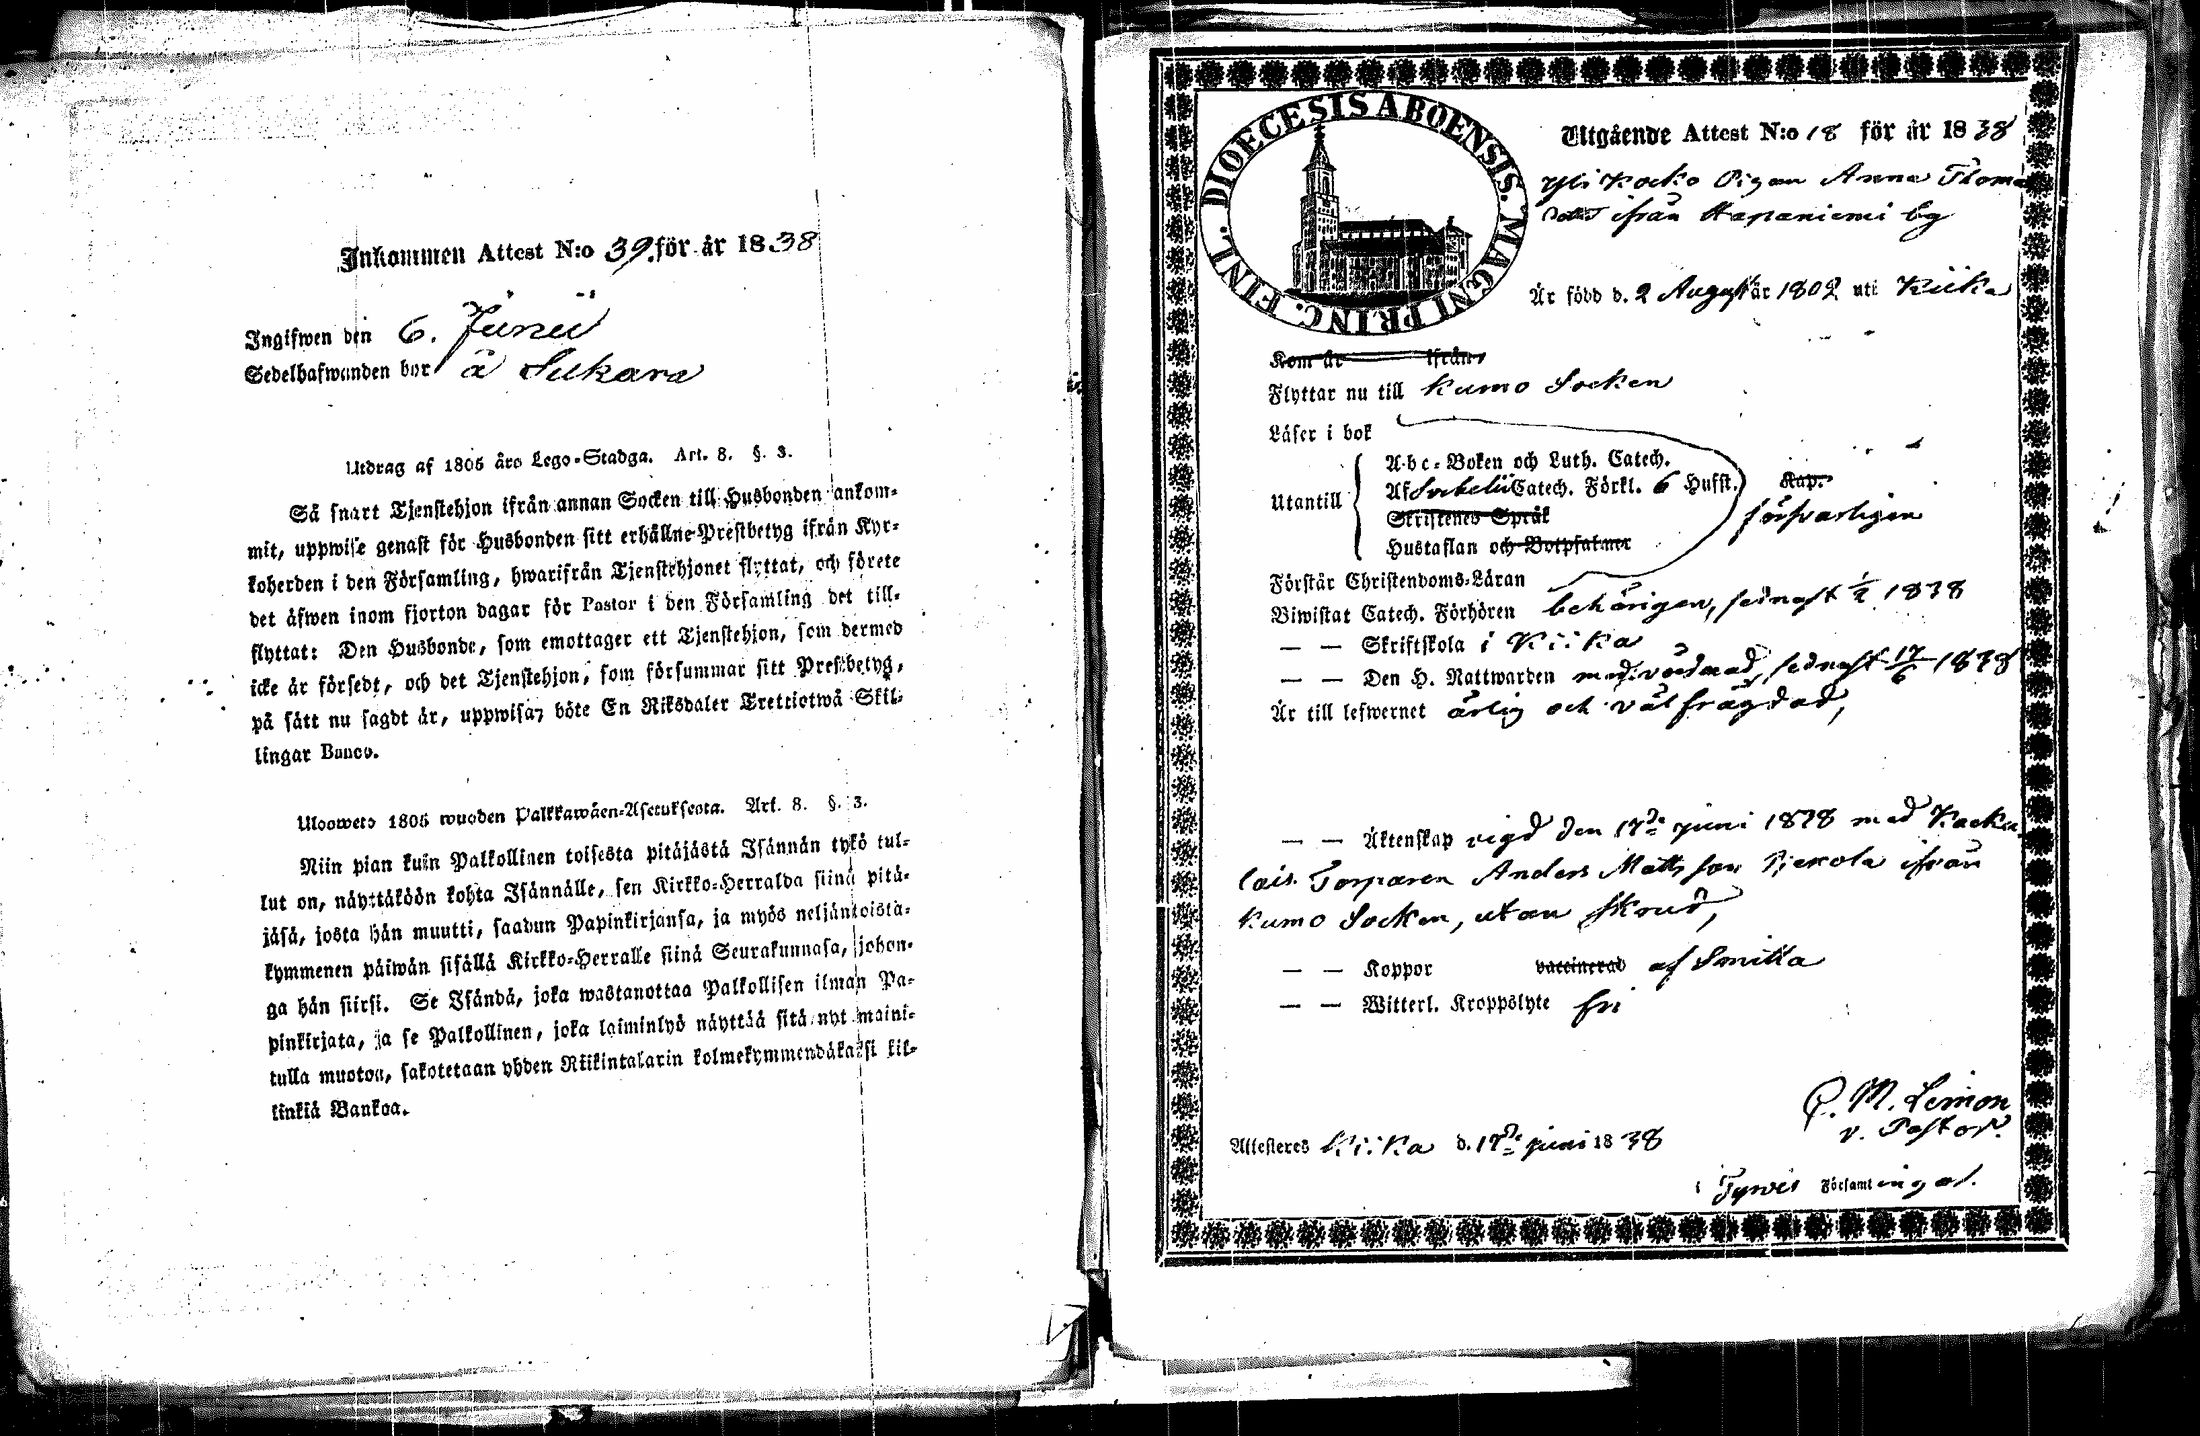 Inkommen Attest N:o 39. för år 1838
Ingifwen den 6. Junii
Sedelhafwanden bor å Sukara
Utdrag af 1805 års Lego-Stadga. Art. 8. §. 3.
Så snart Tjenstehjon ifrån annan Socken till Husbonden ankom-
mit, uppwise genast för Husbonden sitt erhållne Prestbetyg ifrån Kyr-
koherden i den Församling, hwarifrån Tjenstehjonet flyttat, och förete
det äfwen inom fjorton dagar för Pastor i den Församling det till-
flyttat: Den Husbonde, som emottager ett Tjenstehjon, som dermed
icke är försedt, och det Tjenstehjon, som försummar sitt Prestbetyg,
på sätt nu sagdt är, uppwisa, böte En Riksdaler Trettiotwå Skil-
lingar Banco.
Uloswets 1805 wuoden Palkkawäen-Asetuksesta. Art. 8. §. 3.
Niin pian kuin Palkollinen toisesta pitäjästä Isännän tykö tul-
lut on, näyttäköön kohta Isännälle, sen Kirkko-Herralda siinä pitä-
jäsä, josta hän muutti, saadun Papinkirjansa, ja myös neljäntoista-
kymmenen päiwän sisällä Kirkko-Herralle siinä Seurakunnasa, johon-
ga hän siirsi. Se Isändä, joka wastanottaa Palkollisen ilman Pa-
pinkirjata, ja se Palkollinen, joka laiminlyö näyttää sitä nyt maini-
tulla muoton, sakotetaan yhden Riikintalarin kolmekymmendäkaksi kil-
linkiä Bankoa.
DIOECESIS ABOENSIS. MAGNI PRINC. FINL.
Utgående Attest N:o 18 för år 1838
Yli Kocko Pigan Anna Thomæ
Dotter ifrån Hapaniemi by
Är född d. 2 August år 1802 uti Kiika
Kom år ifrån
Flyttar nu till Kumo Socken
Läser i bok
Utantill
A-b-c-Boken och Luth. Catech.
Af Svebelii Catech. Förkl. 6 Hufst. Kap.
Skriftenes Språk försvarligen
Hustaflan och Botpsalmer
Förstår Christendoms-Läran
Biwistat Catech. Förhören behörigen, sednast 1/2 1838
— — Skriftskola i Kiika
— — Den H. Nattwarden med vördnad, sednast 17/6 1838
Är till lefwernet ärlig och välfrägdad,
— — Äktenskap vigd den 17de juni 1838 med
Torparen Anders Matts son ifrån
Kumo Socken, utan skrud,
— — Koppor vaccinerad af Smitta
— — Witterl. Kroppslyte fri
Attesteres Kiika d. 17de juni 1838
v. Pastor.
i Tyrvis Församlingal.